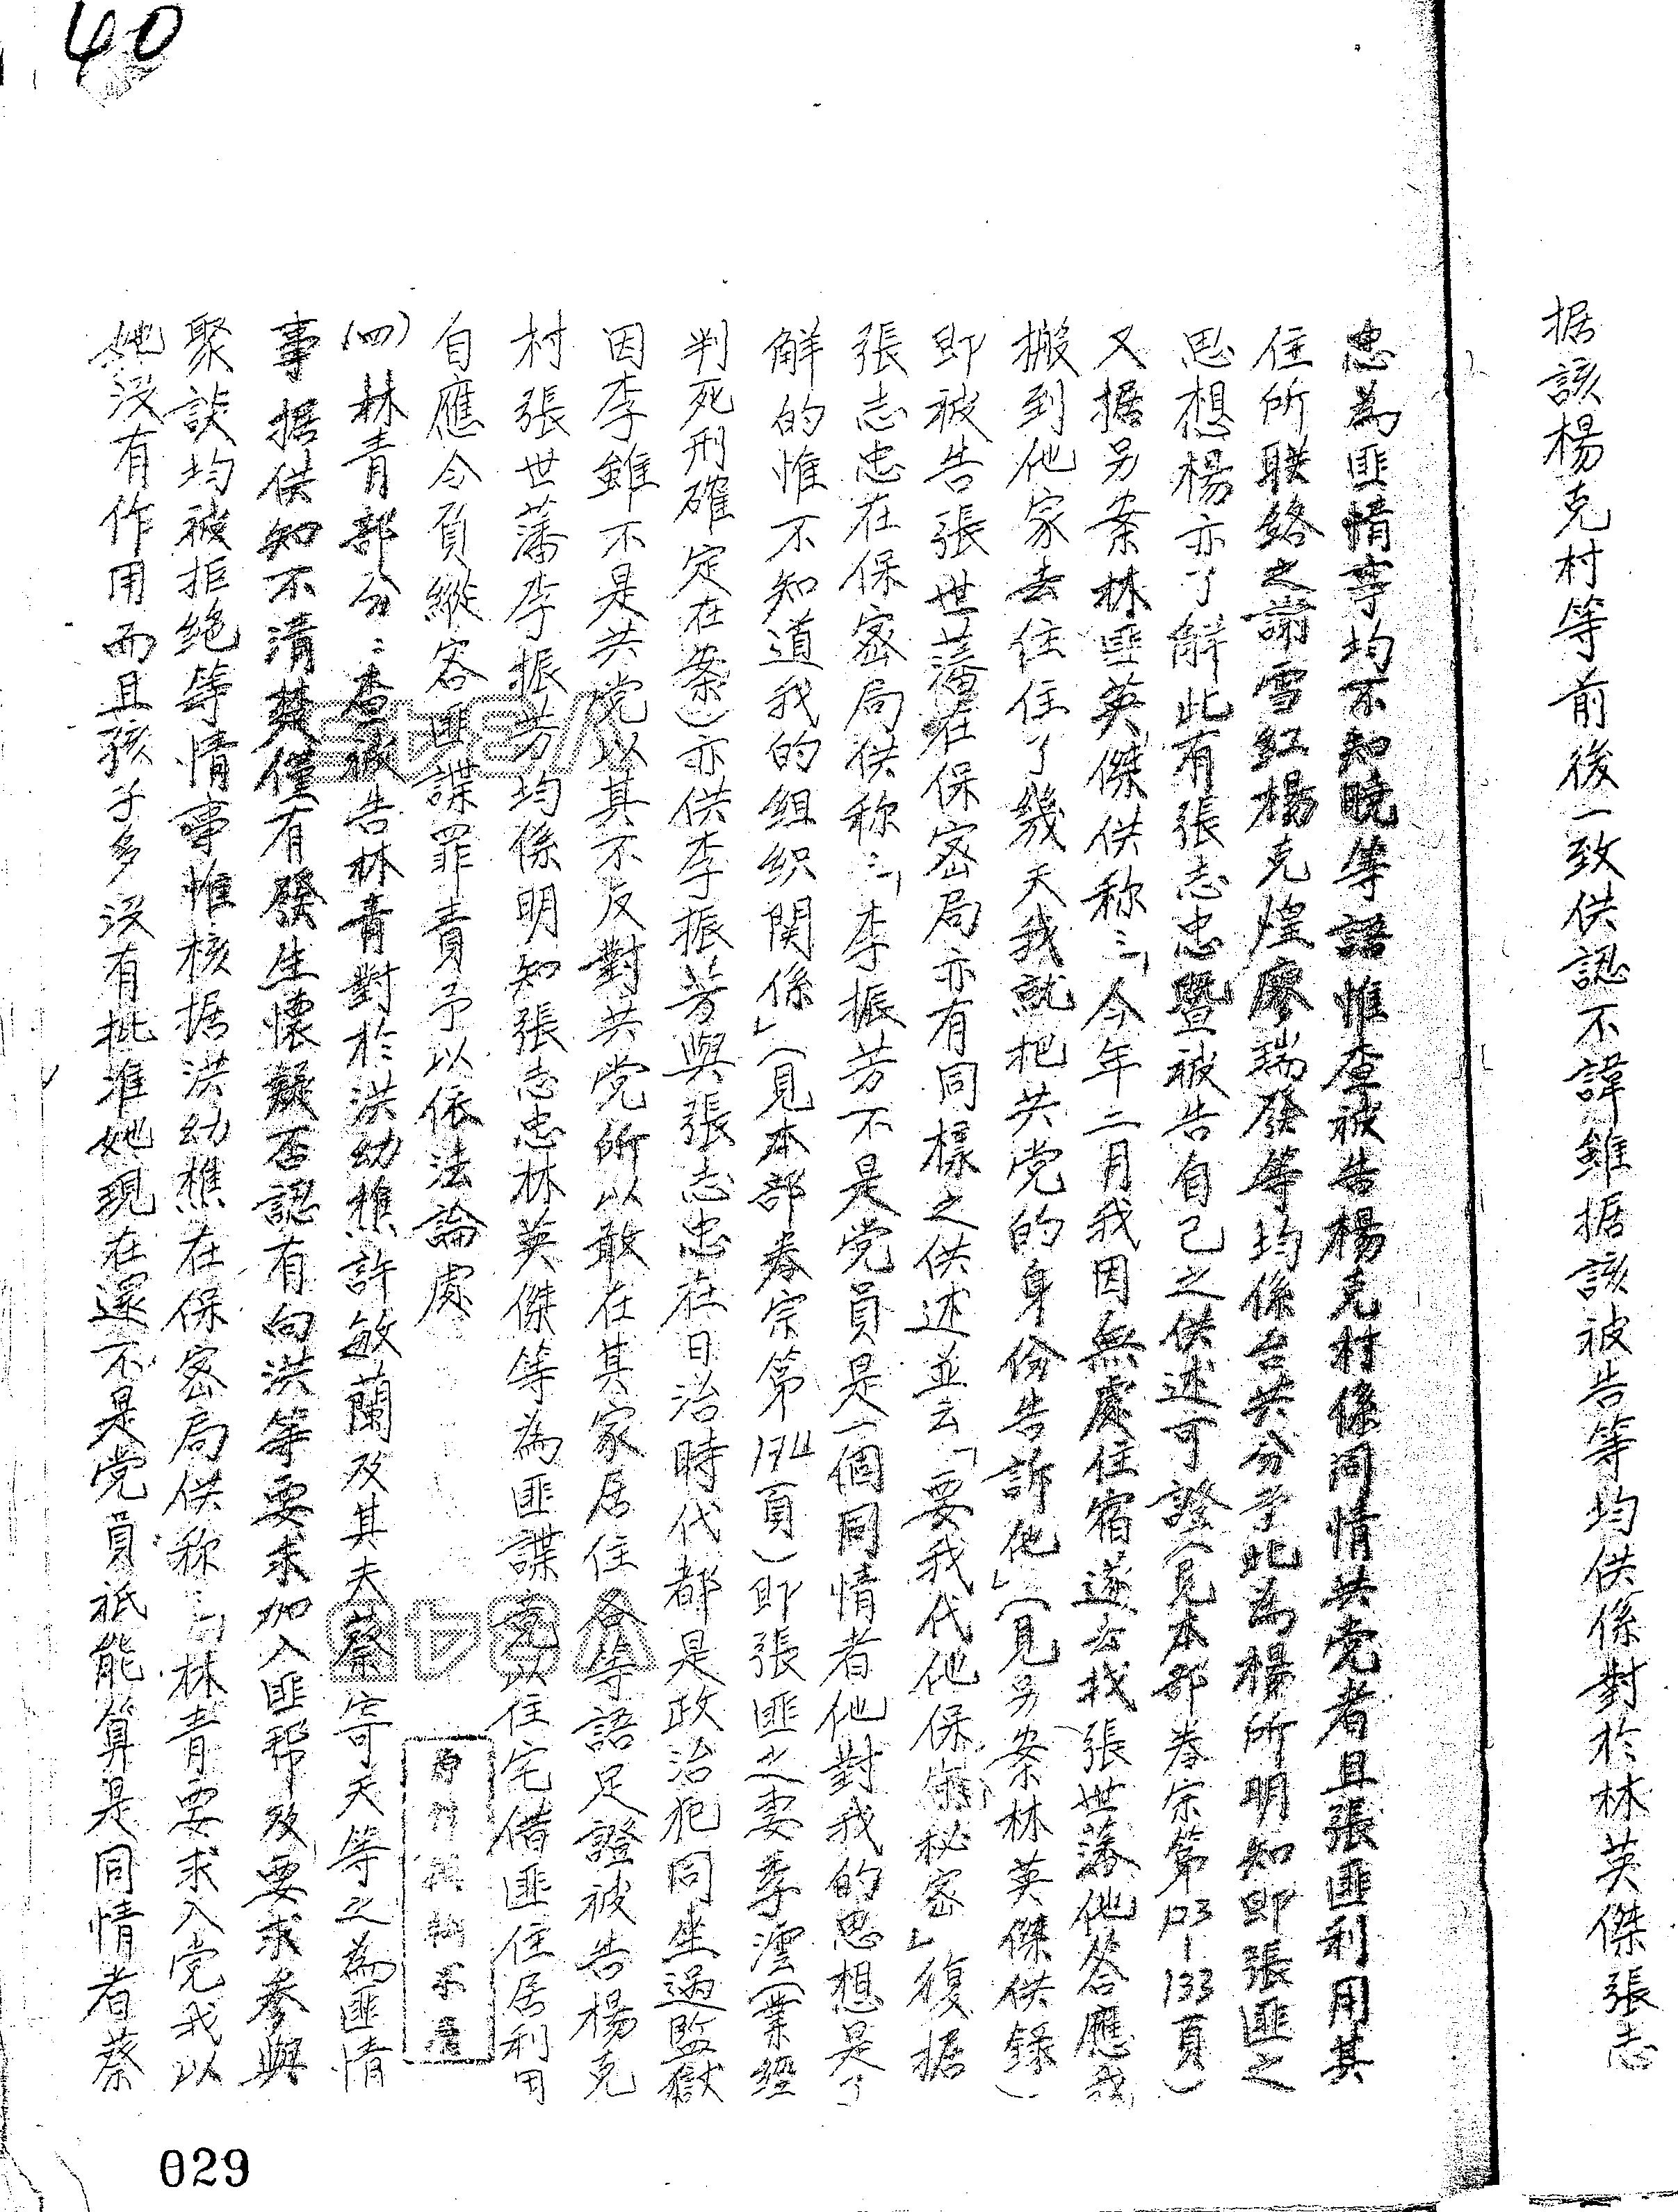 40
据該楊克村等前後一致供認不諱雖据該被告等均供係對於林英傑張志
忠為匪情事均不知曉等語惟查被告楊克村係同情共党者且張匪利用其
住所联络之謝雪红楊克煌廖瑞發等均係台共分子此為楊所明知即張匪之
思想楊亦了解此有張志忠暨被告自己之供述可證(見本部卷宗第 133頁)
又据另案林匪英傑供称:「今年二月我因無處住宿遂去找張世藩他答應我
搬到他家去住住了幾天我就把共党的身份告訴他」(見另案林英傑供錄)
即被告張世藩在保密局亦有同樣之供述並云「要我代他保守秘密」復据
張志忠在保密局供称:「李振芳不是党員是一個同情者他對我的思想是了
解的惟不知道我的组织関係」(見本部卷宗第174頁)即張匪之妻季澐(業經
判死刑確定在案)亦供李振芳與張志忠在日治時代都是政治犯同坐過監獄
因李雖不是共党以其不反對共党所以敢在其家居住各等語足證被告楊克
村張世藩李振芳均係明知張志忠林英傑等為匪諜竟以住宅借匪住居利用
自應令負縱容匪諜罪責予以依法論處
(四)林青部分:查被告林青對於洪幼樵許敏蘭及其夫蔡寄天等之為匪情
事据供知不清楚僅有發生懷疑否認有向洪等要求加入匪帮及要求參與
聚談均被拒绝等情事惟核据洪幼樵在保密局供称:「林青要求入党我以
她没有作用而且孩子多没有批准她現在還不是党員祇能算是同情者蔡
029